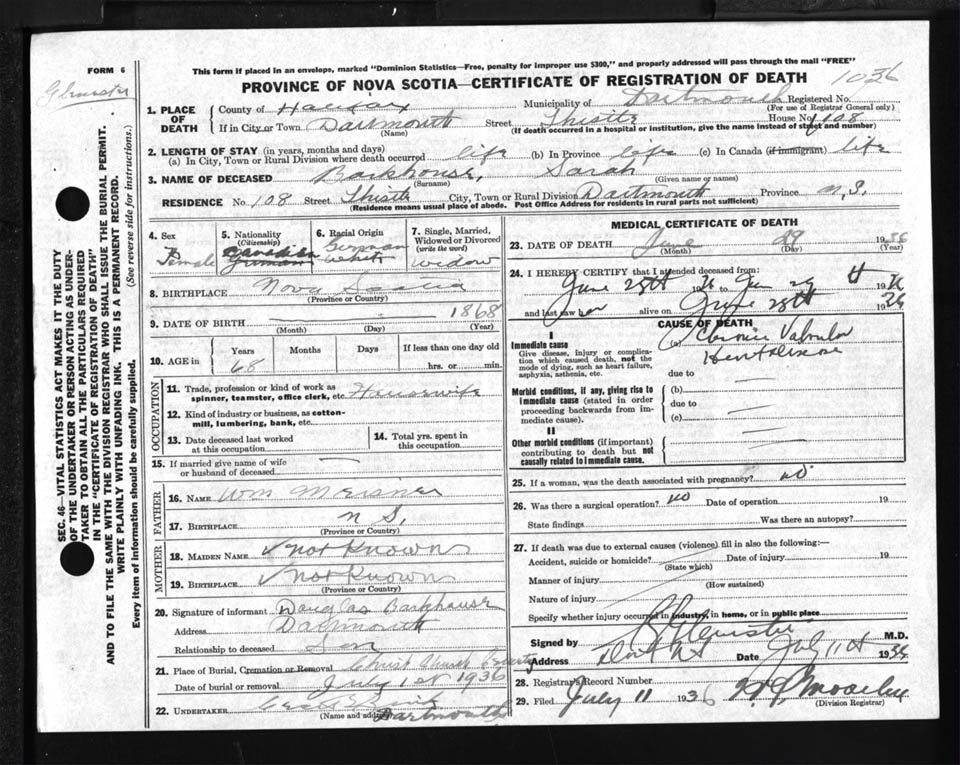 FORM 6
This form if placed in an envelope, marked "Dominion Statistics—Free, penalty for improper use $300," and properly addressed will pass through the mail "FREE"
PROVINCE OF NOVA SCOTIA—CERTIFICATE OF REGISTRATION OF DEATH
1036
1. PLACE OF DEATH
County of Halifax Municipality of Dartmouth Registered No.
(For use of Registrar General only)
If in City or Town Dartmouth Street Thistle House No. 108
(Name) (If death occurred in a hospital or institution, give the name instead of street and number)
2. LENGTH OF STAY (in years, months and days)
(a) In City, Town or Rural Division where death occurred life (b) In Province life (c) In Canada (if immigrant) life
3. NAME OF DECEASED Barkhouse, Sarah
(Surname) (Given name or names)
RESIDENCE No. 108 Street Thistle City, Town or Rural Division Dartmouth Province N.S.
(Residence means usual place of abode. Post Office Address for residents in rural parts not sufficient)
4. Sex
Female
5. Nationality
(Citizenship)
Canadian
German
6. Racial Origin
German
White
7. Single, Married, Widowed or Divorced
(write the word)
Widow
8. BIRTHPLACE Nova Scotia
(Province or Country)
9. DATE OF BIRTH 1868
(Month) (Day) (Year)
10. AGE in
Years Months Days If less than one day old
68 hrs. or min.
OCCUPATION
11. Trade, profession or kind of work as spinner, teamster, office clerk, etc. Housewife
12. Kind of industry or business, as cotton-mill, lumbering, bank, etc.
13. Date deceased last worked at this occupation
14. Total yrs. spent in this occupation
15. If married give name of wife or husband of deceased
FATHER
16. NAME Wm Meisner
17. BIRTHPLACE N S.
(Province or Country)
MOTHER
18. MAIDEN NAME Not Known
19. BIRTHPLACE Not Known
(Province or Country)
20. Signature of informant Douglas Barkhouse
Address Dartmouth
Relationship to deceased Son
21. Place of Burial, Cremation or Removal Christ Church
Date of burial or removal July 1st 1936
22. UNDERTAKER
(Name and address) Dartmouth
MEDICAL CERTIFICATE OF DEATH
23. DATE OF DEATH June 29 1936
(Month) (Day) (Year)
24. I HEREBY CERTIFY that I attended deceased from:
June 25th 1936 to Jun 29th 1936
and last saw her alive on June 28th 1936
CAUSE OF DEATH
I
Immediate cause
Give disease, injury or complication which caused death, not the mode of dying, such as heart failure, asphyxia, asthenia, etc.
(a) Chronic Valvular
Heart Disease
due to
Morbid conditions, if any, giving rise to immediate cause (stated in order proceeding backwards from immediate cause).
(b)
due to
(c)
II
Other morbid conditions (if important) contributing to death but not causally related to immediate cause.
25. If a woman, was the death associated with pregnancy? no
26. Was there a surgical operation? no Date of operation 19
State findings Was there an autopsy?
27. If death was due to external causes (violence) fill in also the following:—
Accident, suicide or homicide? Date of injury 19
(State which)
Manner of injury
(How sustained)
Nature of injury
Specify whether injury occurred in industry, in home, or in public place
Signed by M.D.
Address Dart N S Date July 11th 1936
28. Registrar's Record Number
29. Filed July 11 1936
(Division Registrar)
SEC. 46—VITAL STATISTICS ACT MAKES IT THE DUTY
OF THE UNDERTAKER OR PERSON ACTING AS UNDER-
TAKER TO OBTAIN ALL THE PARTICULARS REQUIRED
IN THE "CERTIFICATE OF REGISTRATION OF DEATH"
AND TO FILE THE SAME WITH THE DIVISION REGISTRAR WHO SHALL ISSUE THE BURIAL PERMIT.
WRITE PLAINLY WITH UNFADING INK. THIS IS A PERMANENT RECORD.
Every item of information should be carefully supplied. (See reverse side for instructions).